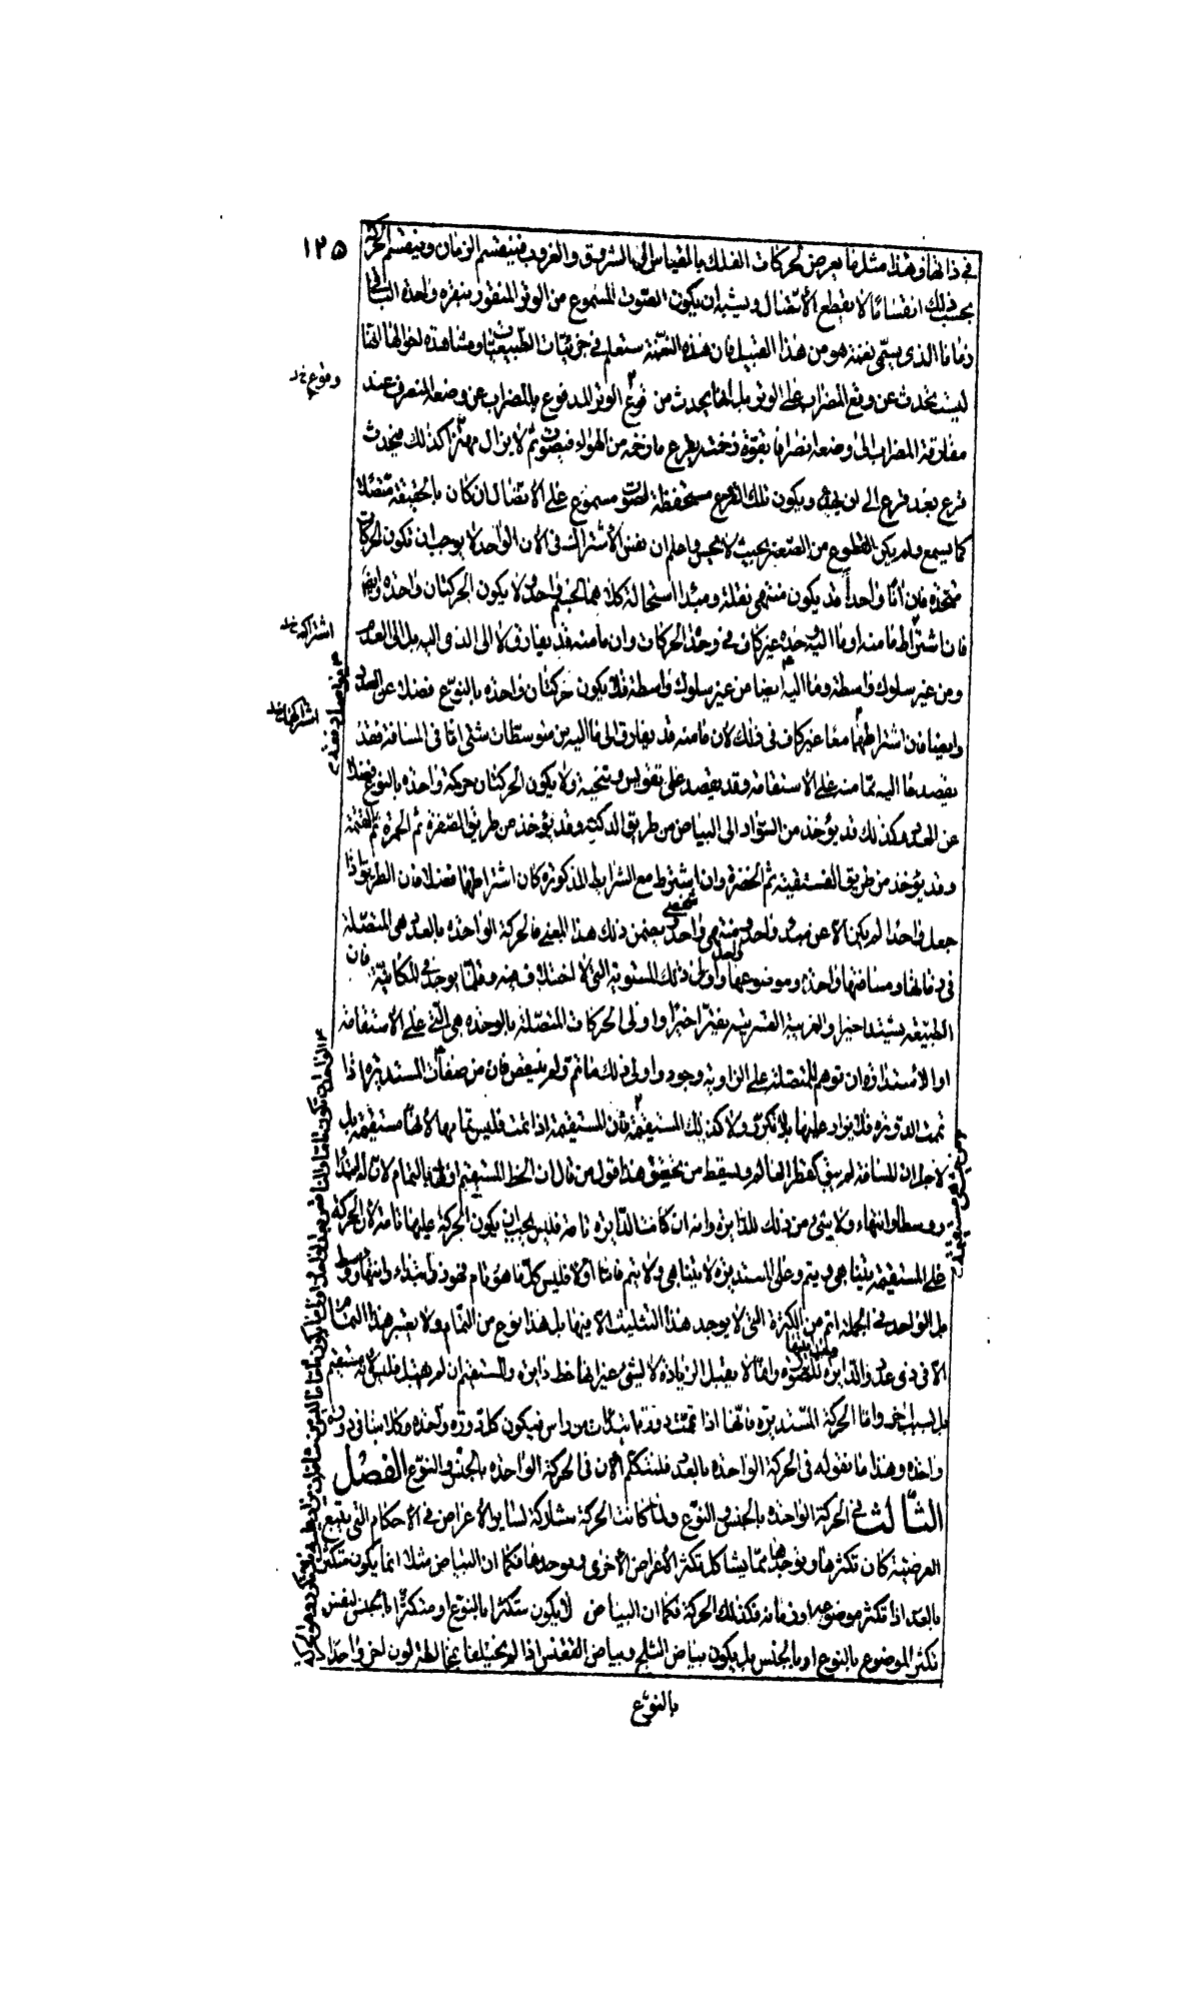 ١٢٥
في ذاتها وهذا مثل ما يعرض لحركات الفلك بالمقياس الى الشروق والغروب فينقسم الزمان وينقسم الحركة
بحسب ذلك انقساما لا يقطع الاتصال ويشبه ان يكون الصوت المسموع من الوتر المنقور بنقرة واحدة الباقي
زمانا الذي يسمى نغمة هو من هذا القبيل فان هذه النغمة ستعلم في جزئيات الطبيعيات ومشاهدة احوالها انها
ليست تحدث عن وقع المضراب على الوتر بل انما يحدث من قرع الوتر المدفوع بالمضراب عن وضعه المنصرف عند
وقوع خ د
مفارقة المضراب الى وضعه انصرافا بقوة زحمته يقرع ما زحمه من الهواء فيصوت ثم لا يزال مهتزا كذلك فيحدث
قرع بعد قرع الى ان يهدأ ويكون تلك القروع مستحفظة لصوت مسموع على الاتصال ان كان بالحقيقة متصلا
كما يسمع ولم يكن القطوع من الصغر بحيث لا يحس واعلم ان نفس الاشتراك في الآن الواحد لا يوجب ان تكون الحركات
متحدة فان آنا واحدا قد يكون منتهى نقلة ومبدا استحالة كلاهما لجسم واحد ولا يكون الحركتان واحدة وايضا
فان اشتراط ما منه او ما اليه وحده غير كاف في وحدة الحركات وان ما منه قد يفارق لا الى الذي اليه بل الى العدم
اشتراكه خ د
ومن غير سلوك واسطة وما اليه ايضا من غير سلوك واسطة فلا يكون حركتان واحدة بالنوع فضلا عن العدد
وايضا فان اشتراطهما معا غير كاف في ذلك لان ما منه قد يفارق الى ما اليه من متوسطات شتى اما في المسافة فقد
اشتراكهما خ د
يقصد ما اليه مما منه على الاستقامة وقد يقصد على تقويس وتنحية ولا يكون الحركتان حركة واحدة بالنوع فضلا
عن العدد وكذلك قد يؤخذ من السواد الى البياض من طريق الدكنة وقد يؤخذ من طريق الصفرة ثم الحمرة ثم القتمة
وقد يؤخذ من طريق الفستقية ثم الخضرة وان اشترط مع الشرائط المذكورة كان اشتراطهما فضلا فان الطريق اذا
جعل واحدا لم يكن الا عن مبدء واحد ومنتهى واحد شخصي يتضمن ذلك هذا المعنى فالحركة الواحدة بالعدد هي المتصلة
في زمانها ومسافتها واحدة وموضوعها واحد واولى ذلك المستوية التي لا اختلاف فيه وقلما يوجد في المكانية فان
الطبيعية يشتد اخيرا والعرضية القسرية يفتر اخيرا واولى الحركات المتصلة بالوحدة هي التي على الاستقامة
او الاستدارة وان توهم للمتصلة على الزاوية وجود واولى ذلك ما تم ولم ينقص فان من صفات المستديرة اذا
تمت الدورة فلا يزاد عليها بل تكرر ولا كذلك المستقيمة فان المستقيمة اذا تمت فليس تمامها لانها مستقيمة بل
لاجل ان المسافة لم يبق كقطر العالم ويسقط من تحقيق هذا قول من قال ان الخط المستقيم اولى بالتمام لان له ابتداء
ووسطا وانتهاء ولا شيء من ذلك للدائرة وانه ان كانت الدائرة تامة فليس يجب ان يكون الحركة عليها تامة لان الحركة
على المستقيمة يتناهى ويتم وعلى المستديرة لا يتناهى ولا يتم فاما اولا فليس كل ما هو تام فهو ذو ابتداء وانتهاء ووسط
بل الواحد في الجملة اتم من الكثرة التي لا يوجد هذا التثليث الا منها بل هذا نوع من التمام ولا يعتبر هذا التمام
الا في ذي عدد والدائرة وانها لا يقبل الزيادة لا لشيء غير انها خط دائرة والمستقيم ان لم يقبل فليس لانه مستقيم
بل لسبب اخر واما الحركة المستديرة فانها اذا تمت دورة ما ابتدات من راس فيكون كل دورة واحدة وكلامنا في دورة
واحدة وهذا ما نقوله في الحركة الواحدة بالعدد فلنتكلم الآن في الحركة الواحدة بالجنس والنوع الفصل
الثالث في الحركة الواحدة بالجنس والنوع ولما كانت الحركة مشاركة لسائر الاعراض في الاحكام التي يتبع
العرضية كان تكثرها وتوحدها مما يشاكل تكثر الاعراض الاخرى وتوحدها فكما ان البياض مثلا انما يكون متكثرا
بالعدد اذا تكثر موضوعه او زمانه فكذلك الحركة فكما ان البياض لا يكون متكثرا بالنوع او متكثرا بالجنس لنفس
تكثر الموضوع بالنوع او بالجنس بل يكون بياض الثلج وبياض الققنس اذا لم يختلفا في انهما لون اخر واحدا
بالنوع